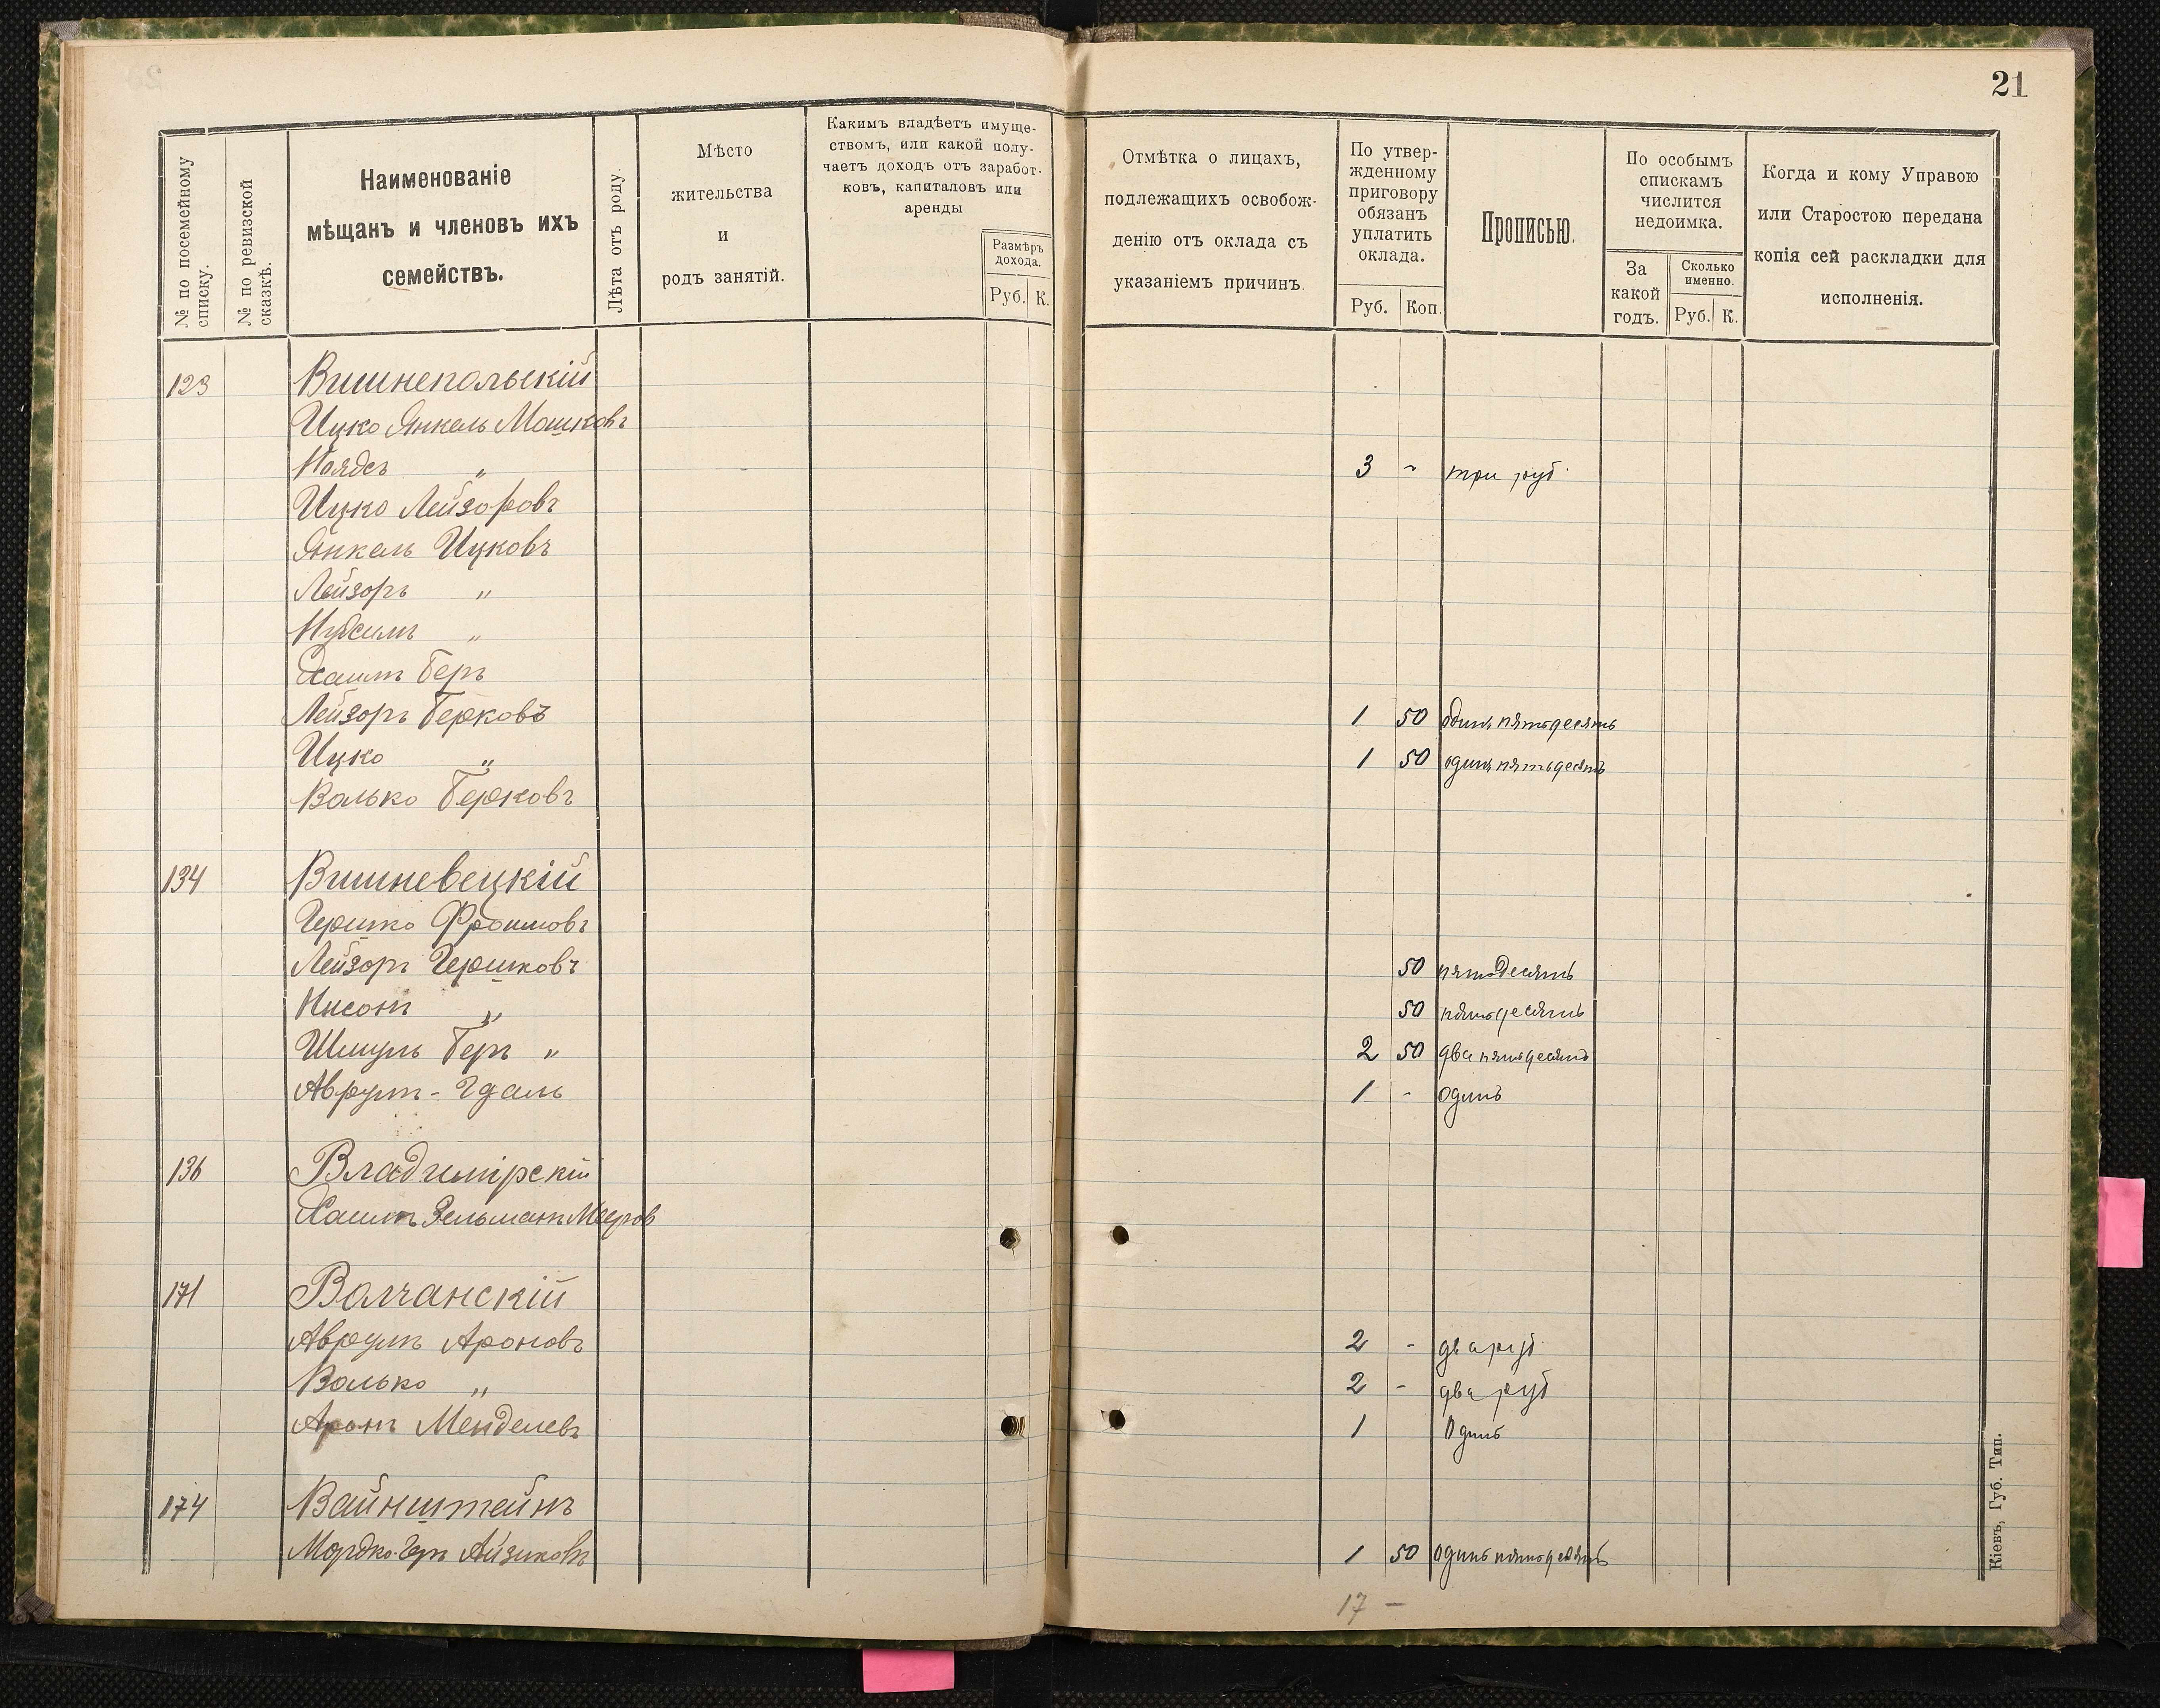 21
№ по посемейному списку.
№ по ревизской сказкѣ.
Наименованіе
мѣщанъ и членовъ ихъ
семействъ.
Лѣта отъ роду.
Мѣсто
жительства
и
родъ занятій.
Какимъ владѣетъ имуще-
ствомъ, или какой полу-
чаетъ доходъ отъ заработ-
ковъ, капиталовъ или
аренды
Размѣръ
дохода.
Руб. К.
Отмѣтка о лицахъ,
подлежащихъ освобож-
денію отъ оклада съ
указаніемъ причинъ.
По утвер-
жденному
приговору
обязанъ
уплатить
оклада.
Руб. Коп.
Прописью.
По особымъ
спискамъ
числится
недоимка.
За
какой
годъ.
Сколько
именно.
Руб. К.
Когда и кому Управою
или Старостою передана
копія сей раскладки для
исполненія.
123 Вишнепольскій
Ицко Янкель Мошковъ
" 3 - три руб.
Ицко Лейзоровъ
Янкель Ицковъ
Лейзоръ "
"
Хаимъ Беръ
Лейзоръ Берковъ 1 50 одинъ пятьдесятъ
Ицко " 1 50 одинъ пятьдесятъ
Волько Берковъ
134 Вишневецкій
Гершко Фроимовъ
Лейзоръ Гершковъ 50 пятьдесятъ
Нисонъ " 50 пятьдесятъ
Шмуль Беръ " 2 50 два пятьдесятъ
Аврумъ-Гдаль 1 - одинъ
136 Владимірскій
Хаимъ Зельманъ Мееров
171 Волчанскій
Аврумъ Ароновъ 2 - два руб.
Волько " 2 - два руб
Аронъ Менделевъ 1 Одинъ
174 Вайнштейнъ
Мордко-Геръ Айзиковъ 1 50 одинъ пятьдесятъ
17 -
Кіевъ, Губ. Тип.